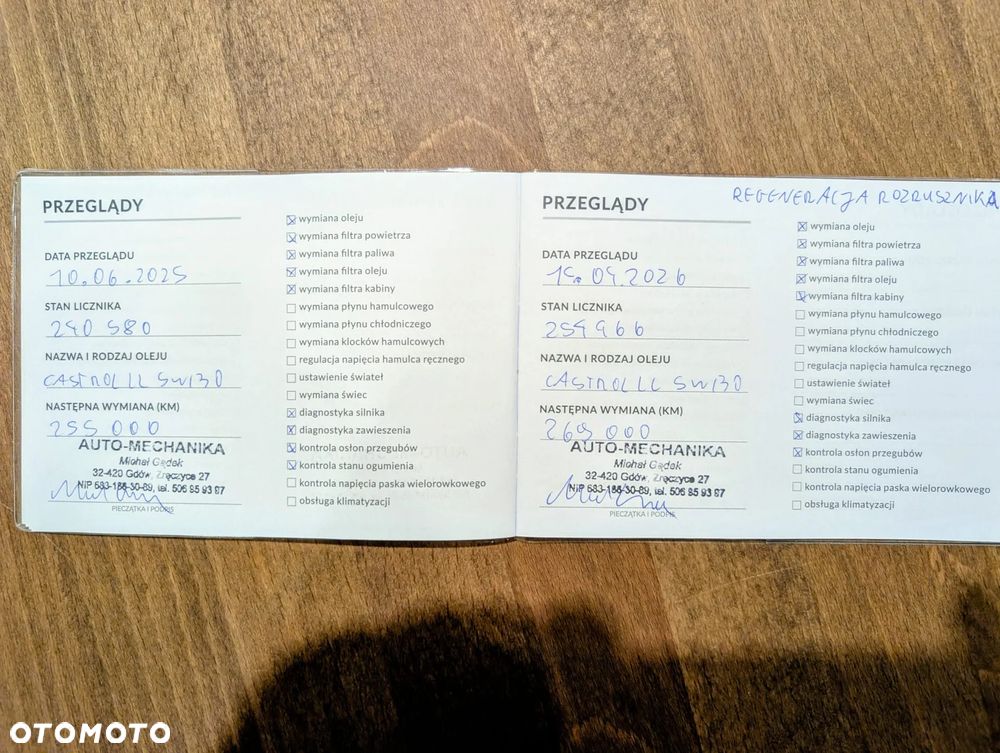 PRZEGLĄDY
DATA PRZEGLĄDU
10.06.2025
STAN LICZNIKA
240 580
NAZWA I RODZAJ OLEJU
CASTROL LL 5W130
NASTĘPNA WYMIANA (KM)
255 000
AUTO-MECHANIKA
Michał Gędek
32-420 Gdów, Zręczyce 27
NIP 683-188-30-89, tel. 506 85 93 97
PIECZĄTKA I PODPIS
wymiana oleju
wymiana filtra powietrza
wymiana filtra paliwa
wymiana filtra oleju
wymiana filtra kabiny
wymiana płynu hamulcowego
wymiana płynu chłodniczego
wymiana klocków hamulcowych
regulacja napięcia hamulca ręcznego
ustawienie świateł
wymiana świec
diagnostyka silnika
diagnostyka zawieszenia
kontrola osłon przegubów
kontrola stanu ogumienia
kontrola napęcia paska wielorowkowego
obsługa klimatyzacji
REGENERACJA ROZRUSZNIKA
PRZEGLĄDY
DATA PRZEGLĄDU
2026
STAN LICZNIKA
254 966
NAZWA I RODZAJ OLEJU
CASTROL LL 5W130
NASTĘPNA WYMIANA (KM)
269 000
AUTO-MECHANIKA
Michał Gędek
32-420 Gdów, Zręczyce 27
NIP 683-188-30-89, tel. 506 85 93 97
PIECZĄTKA I PODPIS
wymiana oleju
wymiana filtra powietrza
wymiana filtra paliwa
wymiana filtra oleju
wymiana filtra kabiny
wymiana płynu hamulcowego
wymiana płynu chłodniczego
wymiana klocków hamulcowych
regulacja napięcia hamulca ręcznego
ustawienie świateł
wymiana świec
diagnostyka silnika
diagnostyka zawieszenia
kontrola osłon przegubów
kontrola stanu ogumienia
kontrola napęcia paska wielorowkowego
obsługa klimatyzacji
OTOMOTO